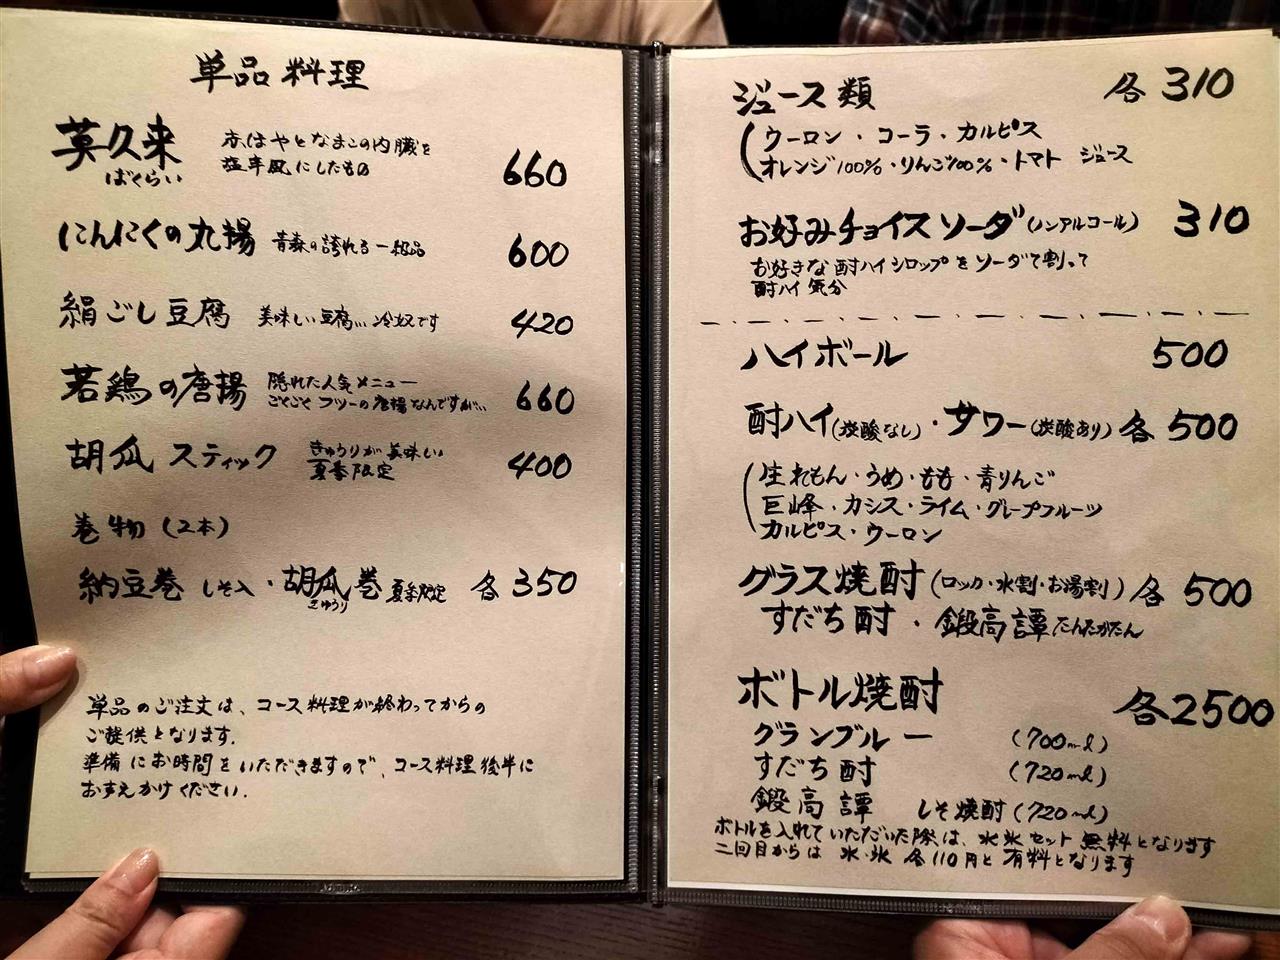 単品料理
莫久来 赤ほやとなまこの内臓を 660
ばくらい 塩辛風にしたもの
にんにくの丸揚 青森の誇れる一級品 600
絹ごし豆腐 美味しい豆腐… 冷奴です 420
若鶏の唐揚 隠れた人気メニュー 660
ごくごくフツーの唐揚なんですが…
胡瓜スティック きゅうりが美味しい 400
夏季限定
巻物(2本)
納豆巻 しそ入・胡瓜巻 夏季限定 各350
きゅうり
単品のご注文は、コース料理が終わってからの
ご提供となります。
準備にお時間をいただきますので、コース料理後半に
お声えかけください。
ジュース類 各310
(ウーロン・コーラ・カルピス
オレンジ100%・りんご100%・トマト ジュース
お好みチョイスソーダ(ノンアルコール) 310
お好きな酎ハイシロップをソーダで割って
酎ハイ気分
ハイボール 500
酎ハイ(炭酸なし)・サワー(炭酸あり) 各500
(生れもん・うめ・もも・青りんご
巨峰・カシス・ライム・グレープフルーツ
カルピス・ウーロン
グラス焼酎(ロック・水割・お湯割) 各500
すだち酎・鍛高譚 たんたかたん
ボトル焼酎 各2500
グランブルー (700ml)
すだち酎 (720ml)
鍛高譚 しそ焼酎(720ml)
ボトルを入れていただいた際は、水氷セット無料となります
二回目からは 水・氷 各110円と有料となります